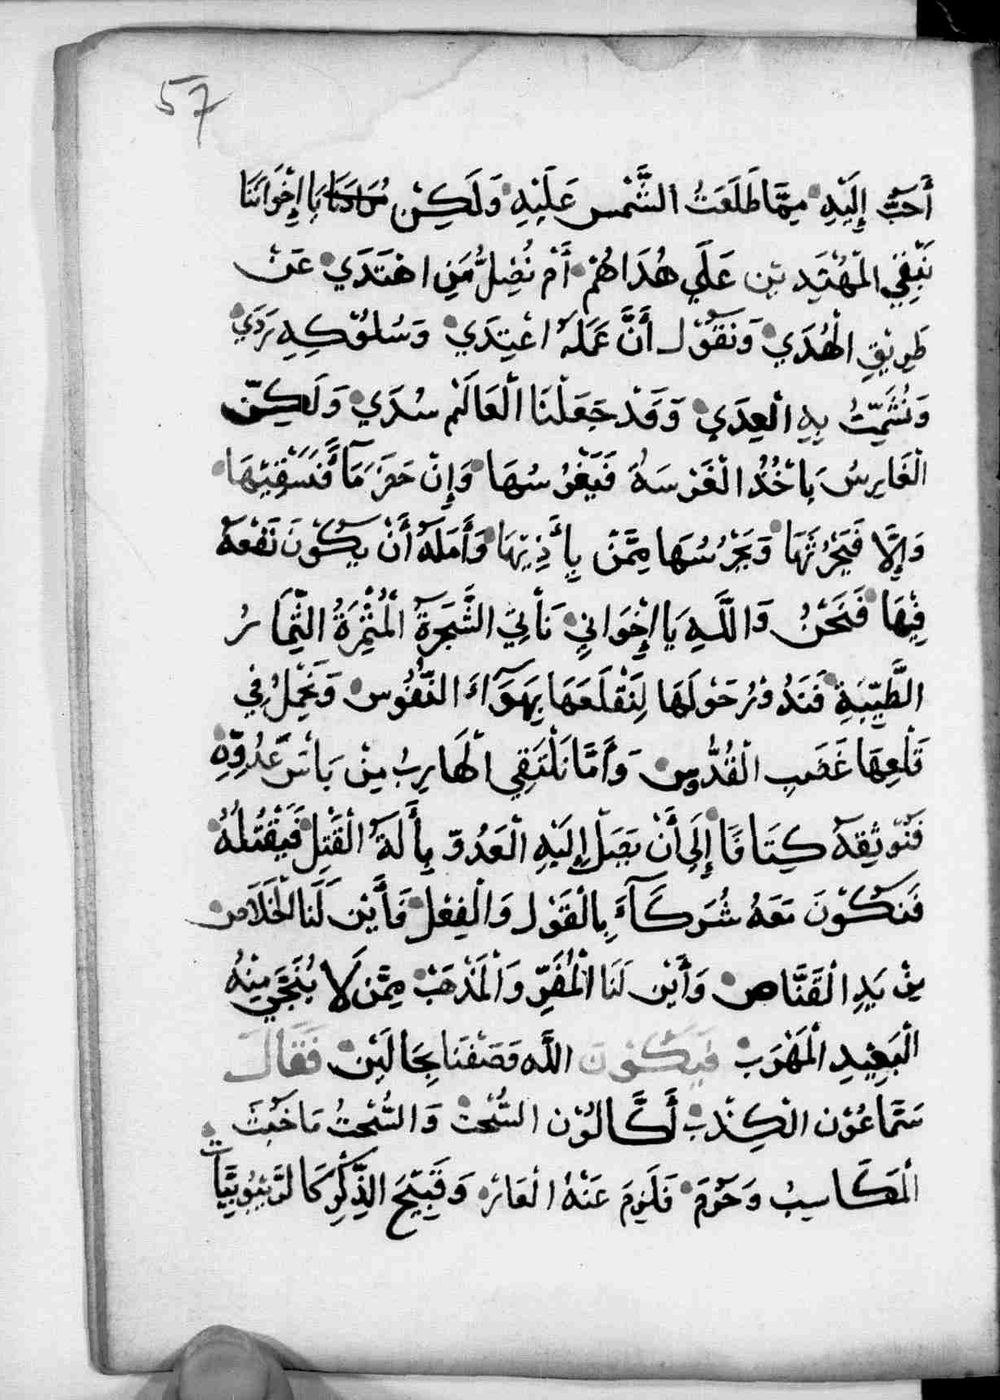 57
أَحَبُّ إِلَيْهِ مِمَّا طَلَعَتُ الشَّمْسِ عَلَيْهِ وَلَكِنْ يَا إِخْوَانَنَا
نُبْقِي الْمُهْتَدِينِ عَلَي هُدَاهُمْ أَمْ نُضِلُّ مَنِ اهْتَدَي عَنْ
طَرِيْقِ الْهُدَي وَنَقُوْلُ أَنَّ عَمَلَهُ اعْتِدَي وَسُلُوْكِهِ رَدَي
وَنُشَمِّتُ بِهِ الْعِدَي وَقَدْ جَعَلْنَا الْعَالَمْ سُدَي وَلَكِنّ
الْغَارِسُ يَأْخُذُ الْغَرْسَةُ فَيَغْرُسُهَا وَإِنْ حَفَرَ مَآ فَنَسْقِيْهَا
وَإِلَّا فَيَحْرُثُهَا وَيَحْرُسُهَا مِمَّنْ يِأَذِيْهَا وَأَمَلَهُ أَنْ يَكُوْنَ نَفْعَهُ
فِيْهَا فَنَحْنُ وَاللَّهِ يَا إِخْوَانِي نَأْتِيْ الشَّجَرَةَ الْمُثْمِرَةُ الثِّمَارُ
الطَّيِّبَةِ فَنَدُوْرُ حَوْلَهَا لِنَقْلَعَهَا بِهَوَآءَ النُّفُوْسِ وَنَحْمِلُ فِي
قَلْعِهَا غَضَبِ الْقُدُّوسِ وَأَمَّا نَلْتَقِي الْهَارِبُ مِنْ بَأْسَ عَدُوِّهِ
فَنُوْثِقِهُ كِتَافًا إِلَي أَنْ يَصَلْ إِلَيْهِ الْعَدُوّ بِأَلَةُ الْقَتِلْ فَيَقْتُلُهُ
فَنَكُوْنَ مَعَهُ شُرَكَآءَ بِالْقَوْلِ وَالْفِعْلْ فَأَيْنِ لَنَا الْخَلَاصِ
مِنْ يَدِ الْقَنَّاصِ وَأَيْنِ لَنَا الْمُفَرِّ وَالْمَذْهَبْ مِمَّنْ لَا يُنَجِّيْ مِنْهُ
الْبَعِيْدِ الْمَهْرَبْ فَيَكُوْنَ اللَّه وَصَفْنَا بِحَالَيْنِ فَقَالَ
سَمَّاعُوْنَ الْكِذْبِ أَكَّالُوْن السُّحْتْ وَالسُّحْتُ مَا خَبُثَ
الْمَكَاسِبُ وَحَرُمَ فَلَزِمَ عَنْهُ الْعَارُ وَقَبِيْحَ الذِّكْرِ